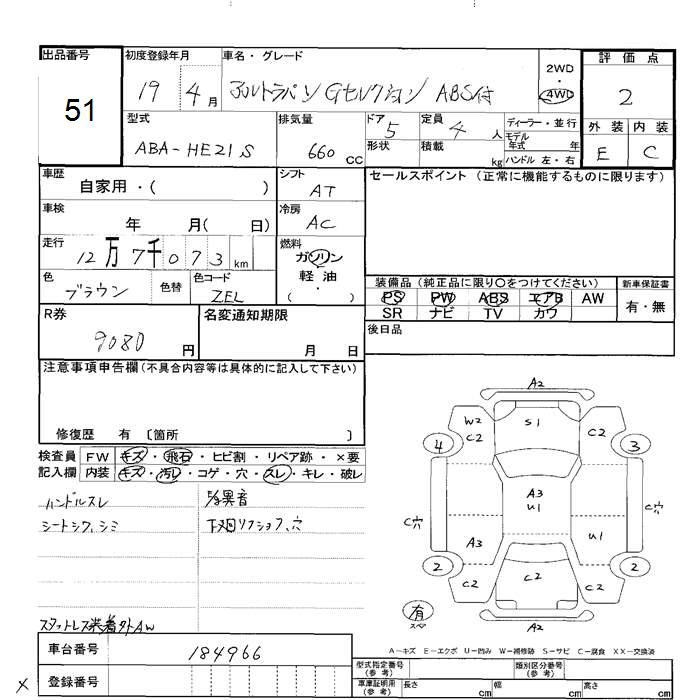 出品番号
51
初度登録年月
19 4月
車名・グレード
アルトラパン Gセレクション ABS付
2WD
・
4WD
評価点
2
外装 内装
E C
型式
ABA-HE21S
排気量
660 CC
ドア 5
形状
定員 4 人
積載 kg
ディーラー・並行
モデル
年式 年
ハンドル 左・右
車歴
自家用・( )
シフト
AT
セールスポイント (正常に機能するものに限ります)
車検
年 月( 日)
冷房
AC
走行
12万7千073km
燃料
ガソリン
軽油
・
( )
色
ブラウン
色替
色コード
ZEL
装備品 (純正品に限り○をつけてください)
新車保証書
PS PW ABS エアB AW
SR ナビ TV カワ
有・無
R券
9080円
名変通知期限
月 日
後日品
注意事項申告欄(不具合内容等は具体的に記入して下さい)
修復歴 有 〔箇所 〕
検査員
記入欄
FW キズ・飛石・ヒビ割・リペア跡・×要
内装 キズ・汚レ・コゲ・穴・スレ・キレ・破レ
ハンドルスレ
異音
シートシワ、シミ
下廻リ
穴
スタットレス装着 外AW
車台番号
184966
× 登録番号
A2
W2
C2
S1
C2
4
3
A3
U1
C穴
C穴
A3
U1
2
2
C2
C2
C2
有
スペア
A2
A―キズ E―エクボ U―凹み W―補修跡 S―サビ C―腐食 XX―交換済
型式指定番号
(参考)
類別区分番号
(参考)
車庫証明用
(参考)
長さ cm
幅 cm
高さ cm